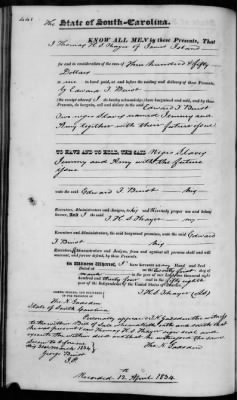 The State of South-Carolina.
KNOW ALL MEN by these Presents, That
I Thomas H S Thayer of James Island
for and in consideration of the sum of Three hundred & fifty
Dollars
to me in hand paid, at and before the sealing and delivery of these Presents,
by Edward T Burst
(the receipt whereof I do hereby acknowledge) have bargained and sold, and by these
Presents, do bargain, sell and deliver to the said Edward T Burst
Two negro Slaves named Jemmy and
Amy together with their future
issue
TO HAVE AND TO HOLD, THE SAID Negro Slaves
Jemmy and Amy with the future
issue
unto the said Edward T Burst his
Executors, Administrators and Assigns, to his and their only proper use and behoof
forever. And I the said T H S Thayer my
Executors, Administrators and Assigns, the said bargained premises, unto the said Edward
T Burst his
Executors, Administrators and Assigns, from and against all persons shall and will
warrant, and forever defend, by these Presents.
In Witness Whereof, I have hereunto set my Hand and Seal
Dated at on the twenty first day of
march in the year of our Lord one thousand eight
hundred and thirty four and in the fifty eighth
year of the Independence of the United States of America.
SIGNED, SEALED AND DELIVERED
IN THE PRESENCE OF
T H S Thayer (LS)
Tho. N. Gadsden
State of South Carolina
Personally appeared T N Gadsden the witness
to the within Bill of Sale
who
was present and saw Thomas H S Thayer sign seal and
execute the within deed and that he witnessed the same
Sworn to before
me 21st March 1834
Tho N Gadsden
George Burst
J.P.
Recorded 12 April 1834.